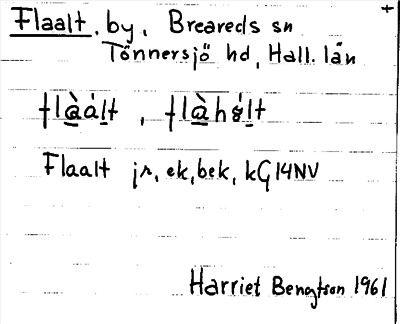 Flaalt, by, Breareds sn
Tönnersjö hd, Hall. län
flàált , flàhált
Flaalt jr, ek, bek, kG14NV
Harriet Bengtson 1961